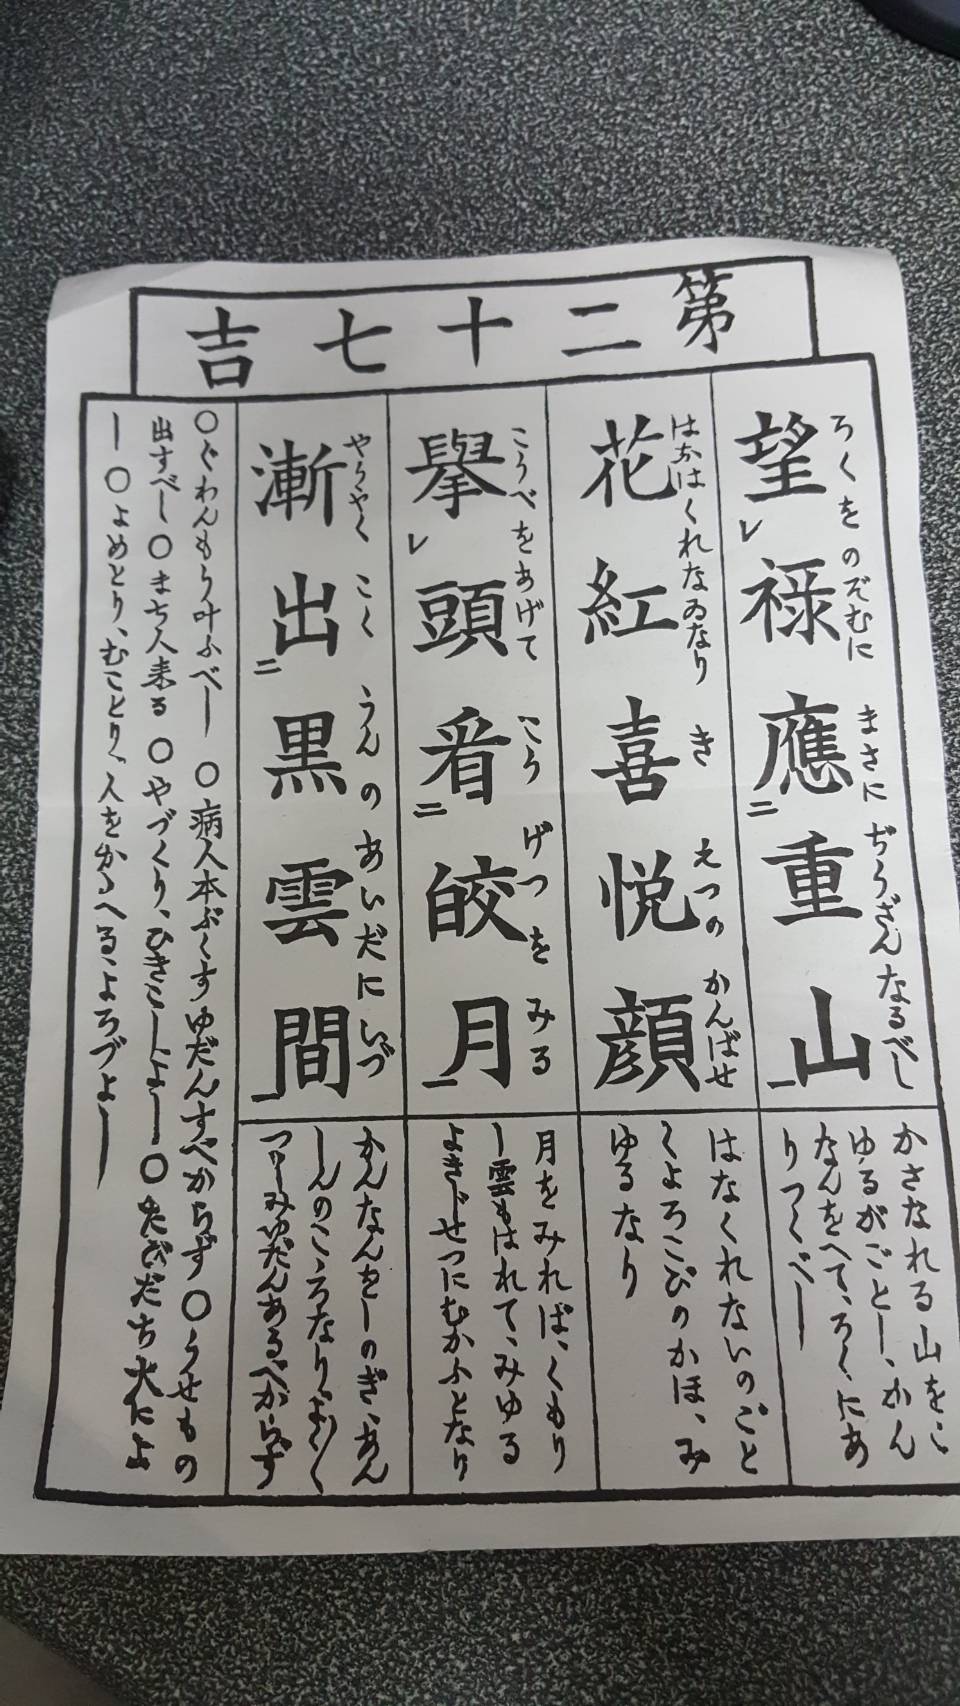 第二十七吉
ろくをのぞむに まさに ぢうざんなるべし
望レ禄應二重山一
かさなれる山をこ
ゆるがごとし、かん
なんをへて、ろくにあ
りつくべし
はなはくれなゐなり き えつの かんばせ
花紅喜悦顔
はなくれないのごと
くよろこびのかほ、み
ゆるなり
こうべをあげて こう げつを みる
擧レ頭看二皎月一
月をみれば、くもり
し雲もはれて、みゆる
よきじせつにむかふとなり
やうやく こく うんの あいだにいづ
漸出二黒雲間一
かんなんをしのぎ、あん
しんのこゝろなり、よく〱
つゝしみゆだんあるべからず
〇ぐわんもう叶ふべし 〇病人本ぶくすゆだんすべからず〇うせもの
出すべし〇まち人来る〇やづくり、ひきこしよし〇たびだち大によ
し〇よめとり、むことり、人をかゝへる、よろづよし